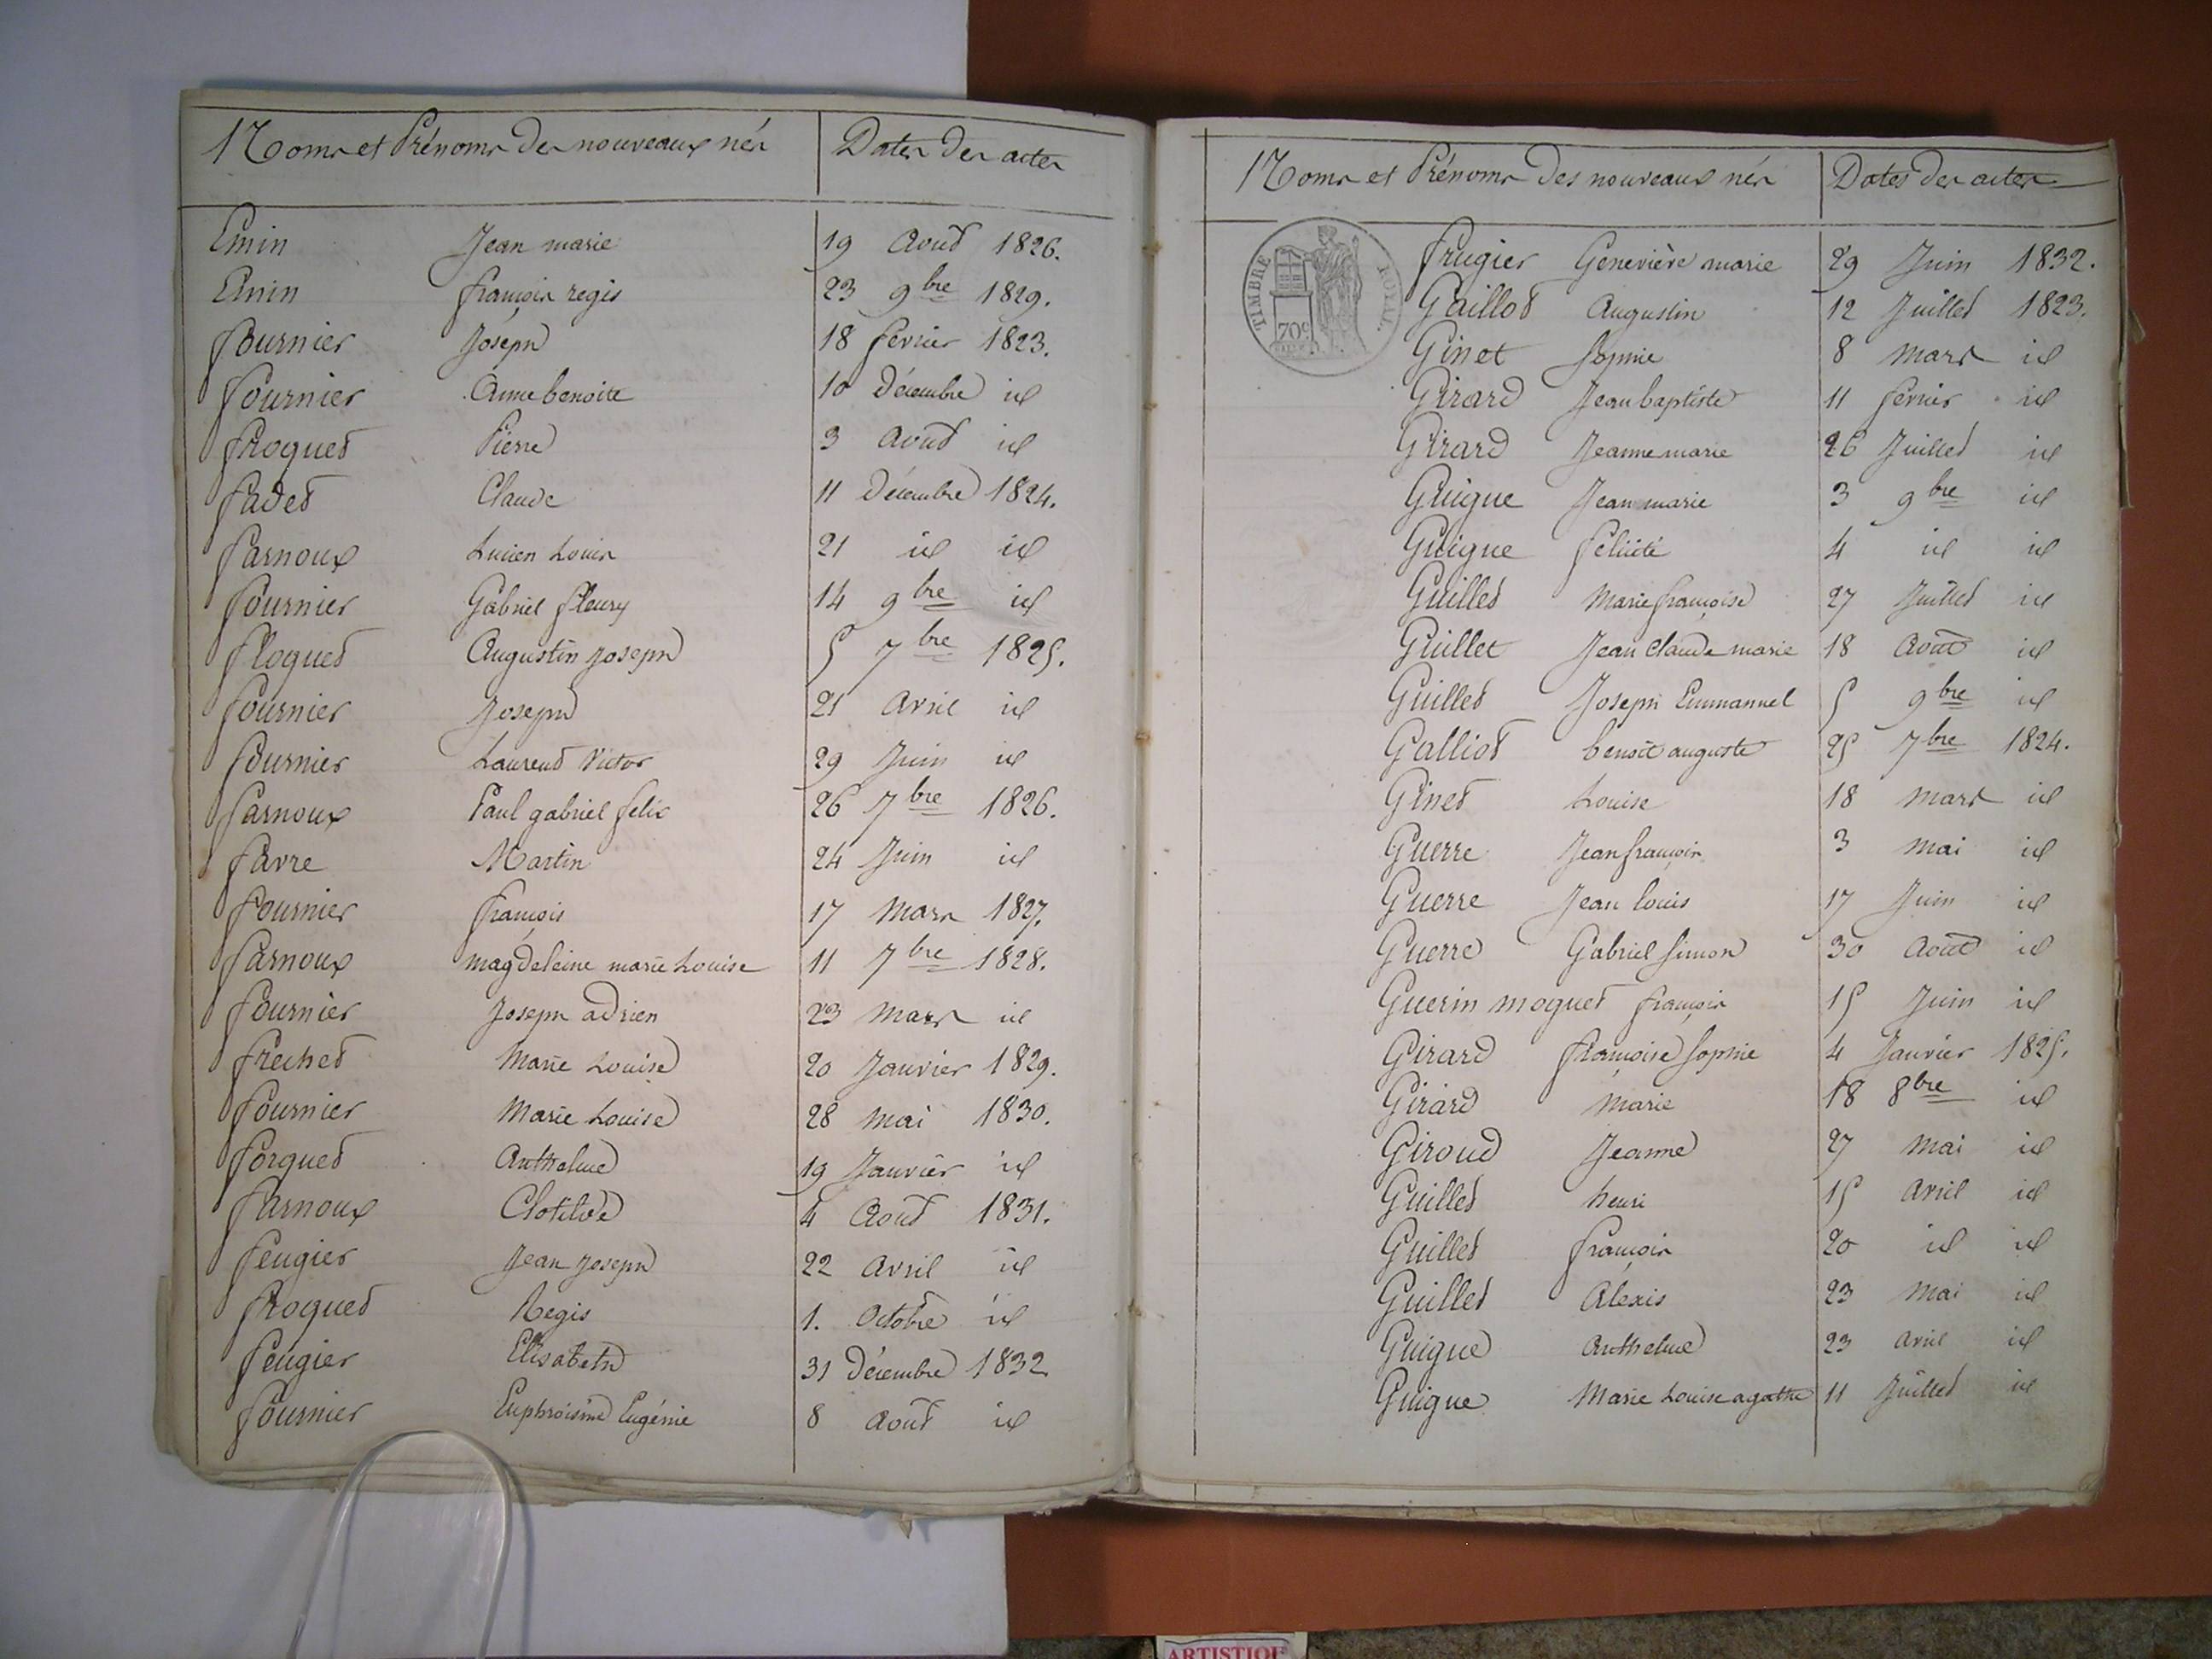 Noms et Prénoms des nouveaux nés Dates des actes
Emin Jean marie 19 Aout 1826.
Emin françois regis 23 9bre 1829.
fournier Joseph 18 fevrier 1823.
fournier Anne benoite 10 Décembre id
froquet Pierre 3 Aout id
fadet Claude 11 Décembre 1824.
farnoux Lucien Louis 21 id id
fournier Gabriel fleury 14 9bre id
floquet Augustin Joseph 5 7bre 1825.
fournier Joseph 21 Avril id
fournier Laurent Victor 29 Juin id
farnoux Paul gabriel felix 26 7bre 1826.
favre Martin 24 Juin id
fournier françois 17 Mars 1827.
farnoux magdeleine marie Louise 11 7bre 1828.
fournier Joseph adrien 23 Mars id
frechet Marie Louise 20 Janvier 1829.
fournier Marie Louise 28 Mai 1830.
forquet Anthelme 19 Janvier id
farnoux Clotilde 4 Aout 1831.
feugier Jean Joseph 22 Avril id
froquet Regis 1. Octobre id
feugier Elisabeth 31 Décembre 1832
fournier Euphroisine Eugénie 8 Août id
Noms et Prénoms des nouveaux nés Dates des actes
TIMBRE ROYAL.
70c
frugier Geneviève marie 29 Juin 1832.
Gaillot Augustin 12 Juillet 1823.
Ginet Sophie 8 Mars id
Girard Jean baptiste 11 fevrier id
Girard Jeanne marie 26 Juillet id
Guigue Jean marie 3 9bre id
Guigue félicité 4 id id
Guillet Marie françoise 27 Juillet id
Guillet Jean Claude marie 18 Août id
Guillet Joseph Emmanuel 5 9bre id
Galliot benoît auguste 25 7bre 1824.
Ginet Louise 18 Mars id
Guerre Jean françois 3 Mai id
Guerre Jean louis 17 Juin id
Guerre Gabriel Simon 30 Août id
Guerin moquet françois 15 Juin id
Girard françoise Sophie 4 Janvier 1825.
Girard Marie 18 8bre id
Giroud Jeanne 27 Mai id
Guillet henri 15 Avril id
Guillet françois 20 id id
Guillet Alexis 23 Mai id
Guigue Anthelme 23 Avril id
Guigue Marie Louise agathe 11 Juillet id
ARTISTIQUE